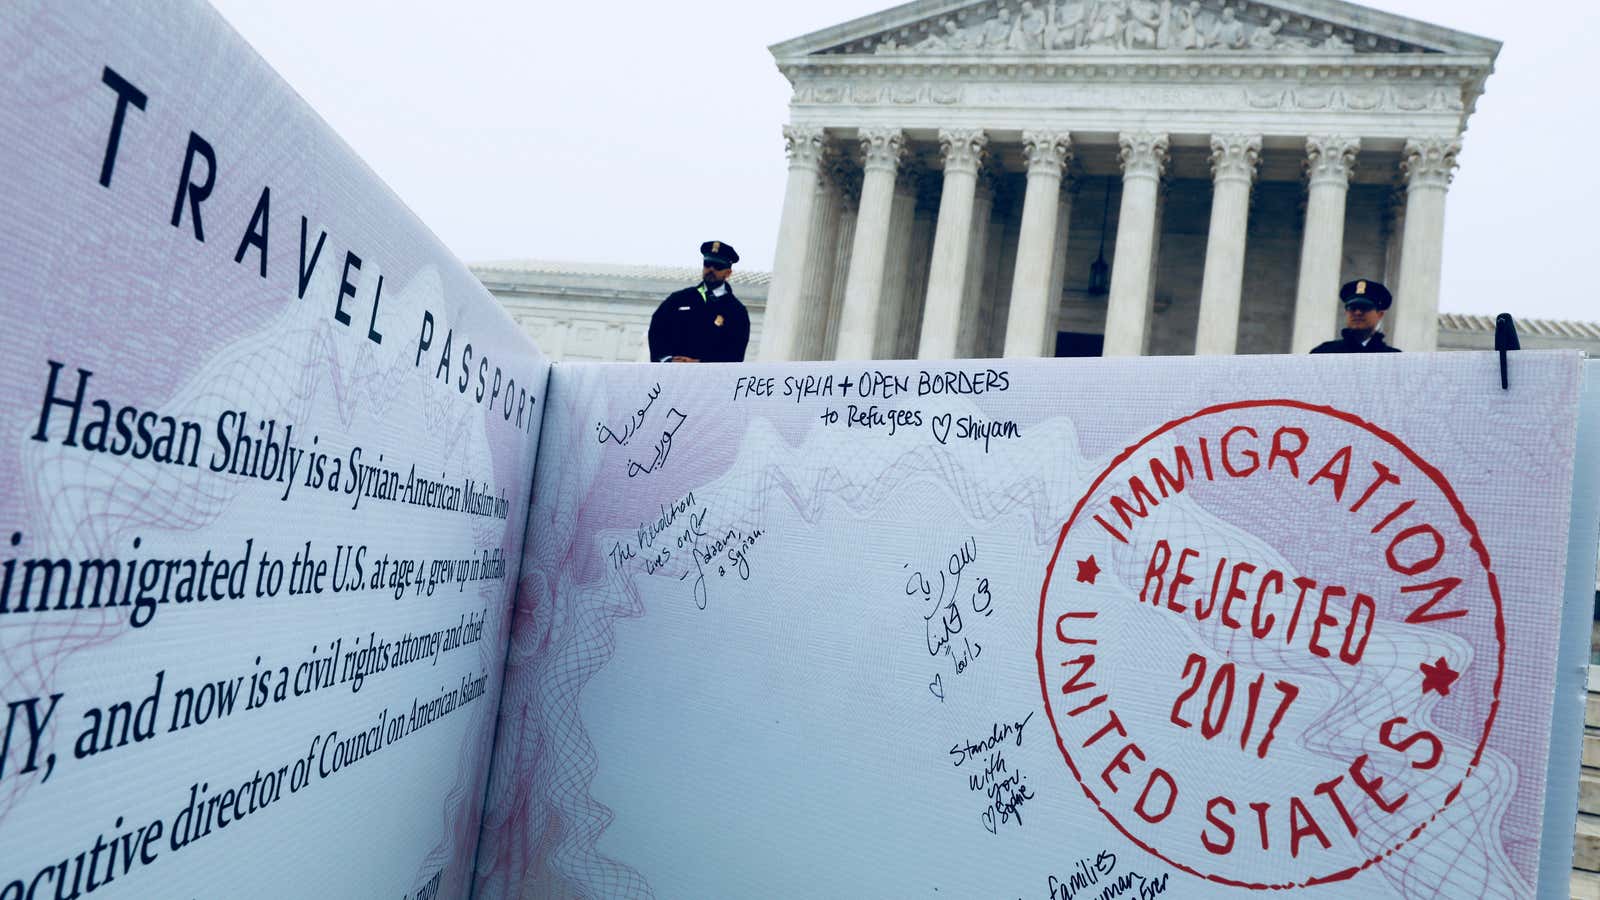 TRAVEL PASSPORT
Hassan Shibly is a Syrian-American Muslim who
immigrated to the U.S. at age 4, grew up in Buffalo,
NY, and now is a civil rights attorney and chief
executive director of Council on American Islamic
سورية
حورية
FREE SYRIA + OPEN BORDERS
to Refugees ♡ Shiyam
The Revolution
lives on
a Syrian.
سورية
في قلبنا
♡
Standing
with
you.
♡ Sophie
families
IMMIGRATION
★ REJECTED
2017 ★
UNITED STATES